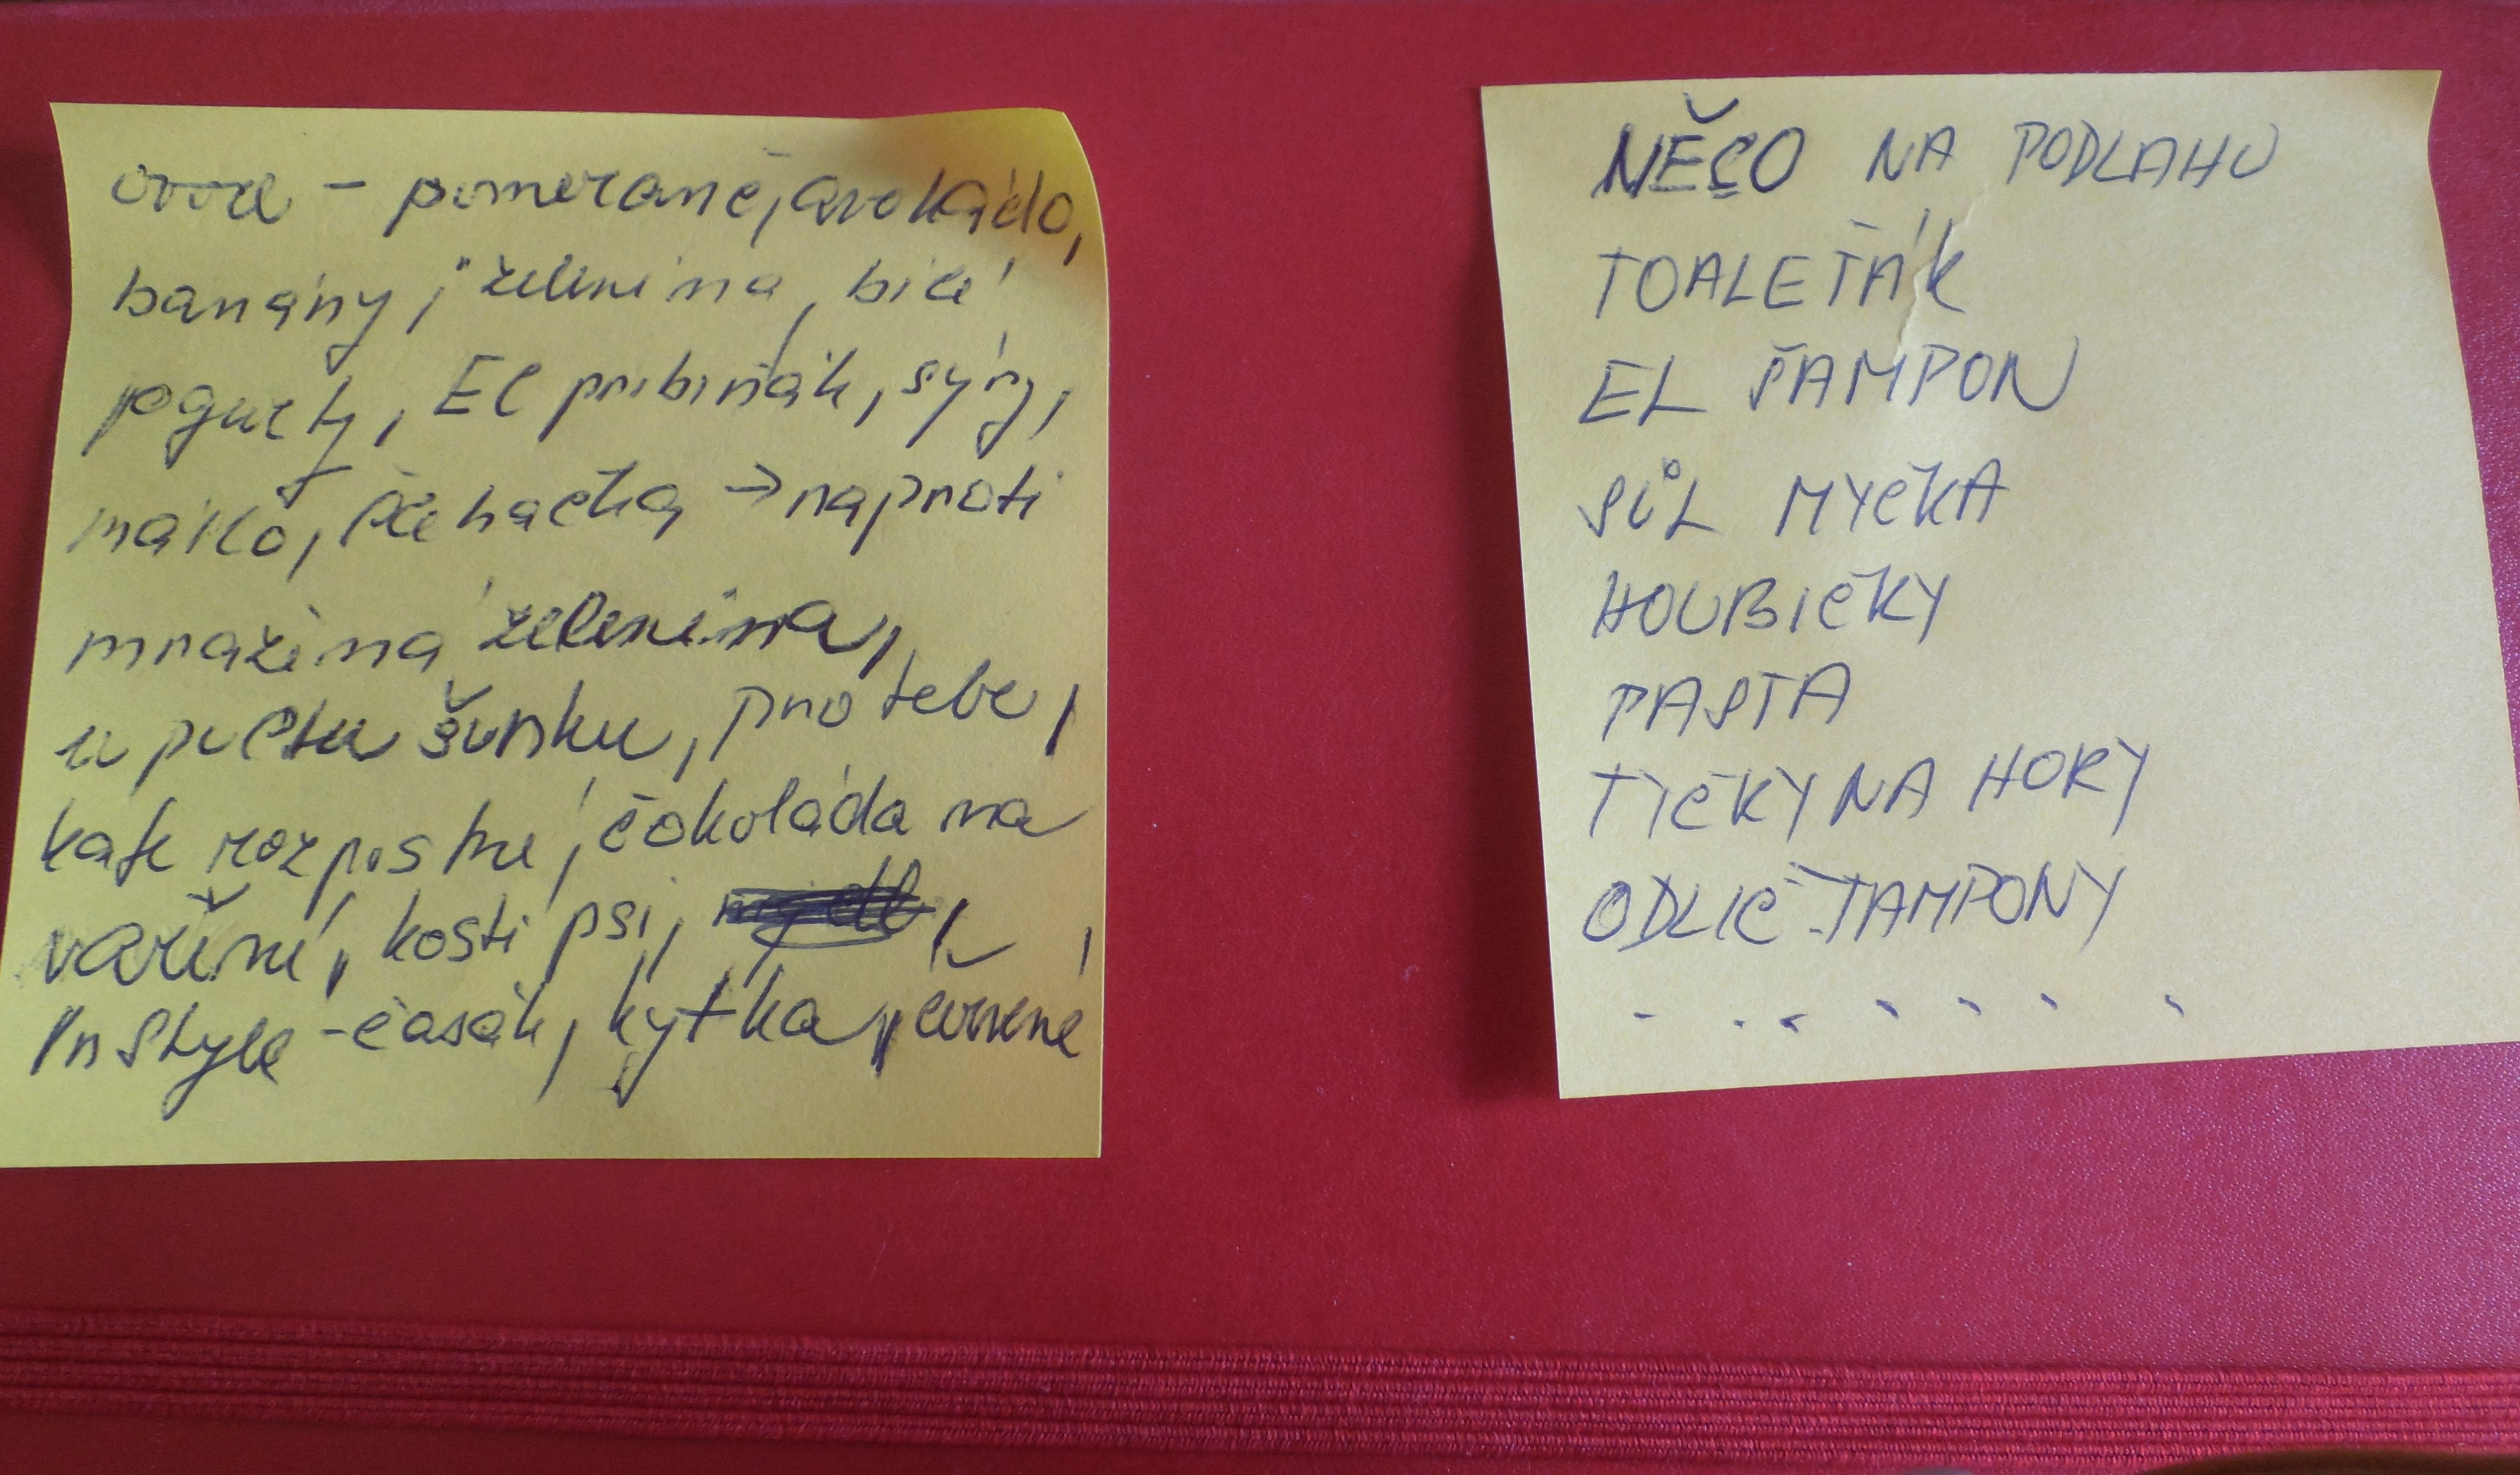 ovoce - pomeranč, avokádo,
banány, zelenina, bílé
jogurty, El pribiňák, sýry,
máslo, čabačka → naproti
mražená zelenina,
u pultu šunku, pro tebe,
kafe rozpustné, čokoláda na
vaření, kosti psi,
InStyle - časák, kytka, červené
NĚCO NA PODLAHU
TOALEŤÁK
EL ŠAMPON
SŮL MYČKA
HOUBIČKY
PASTA
TYČKY NA HORY
ODLIČ. TAMPONY